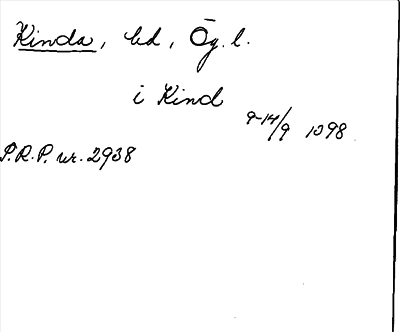 Kinda, hd, Ög.l.
i Kind
9-14/9 1398
P.R.P. nr. 2938